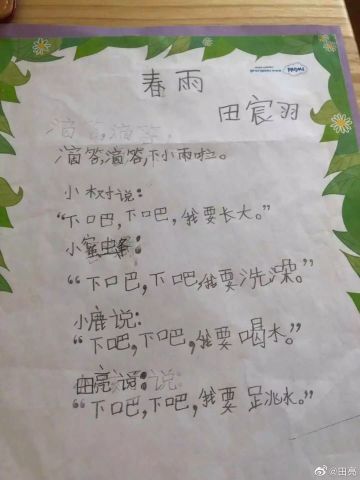 春雨
田宸羽
滴答,滴答,
滴答,滴答,下小雨啦。
小树说:
“下吧,下吧,我要长大。”
小蜜虫:
“下吧,下吧,我要洗澡。”
小鹿说:
“下吧,下吧,我要喝水。”
田亮说:说:
“下吧,下吧,我要跳水。”
@田亮